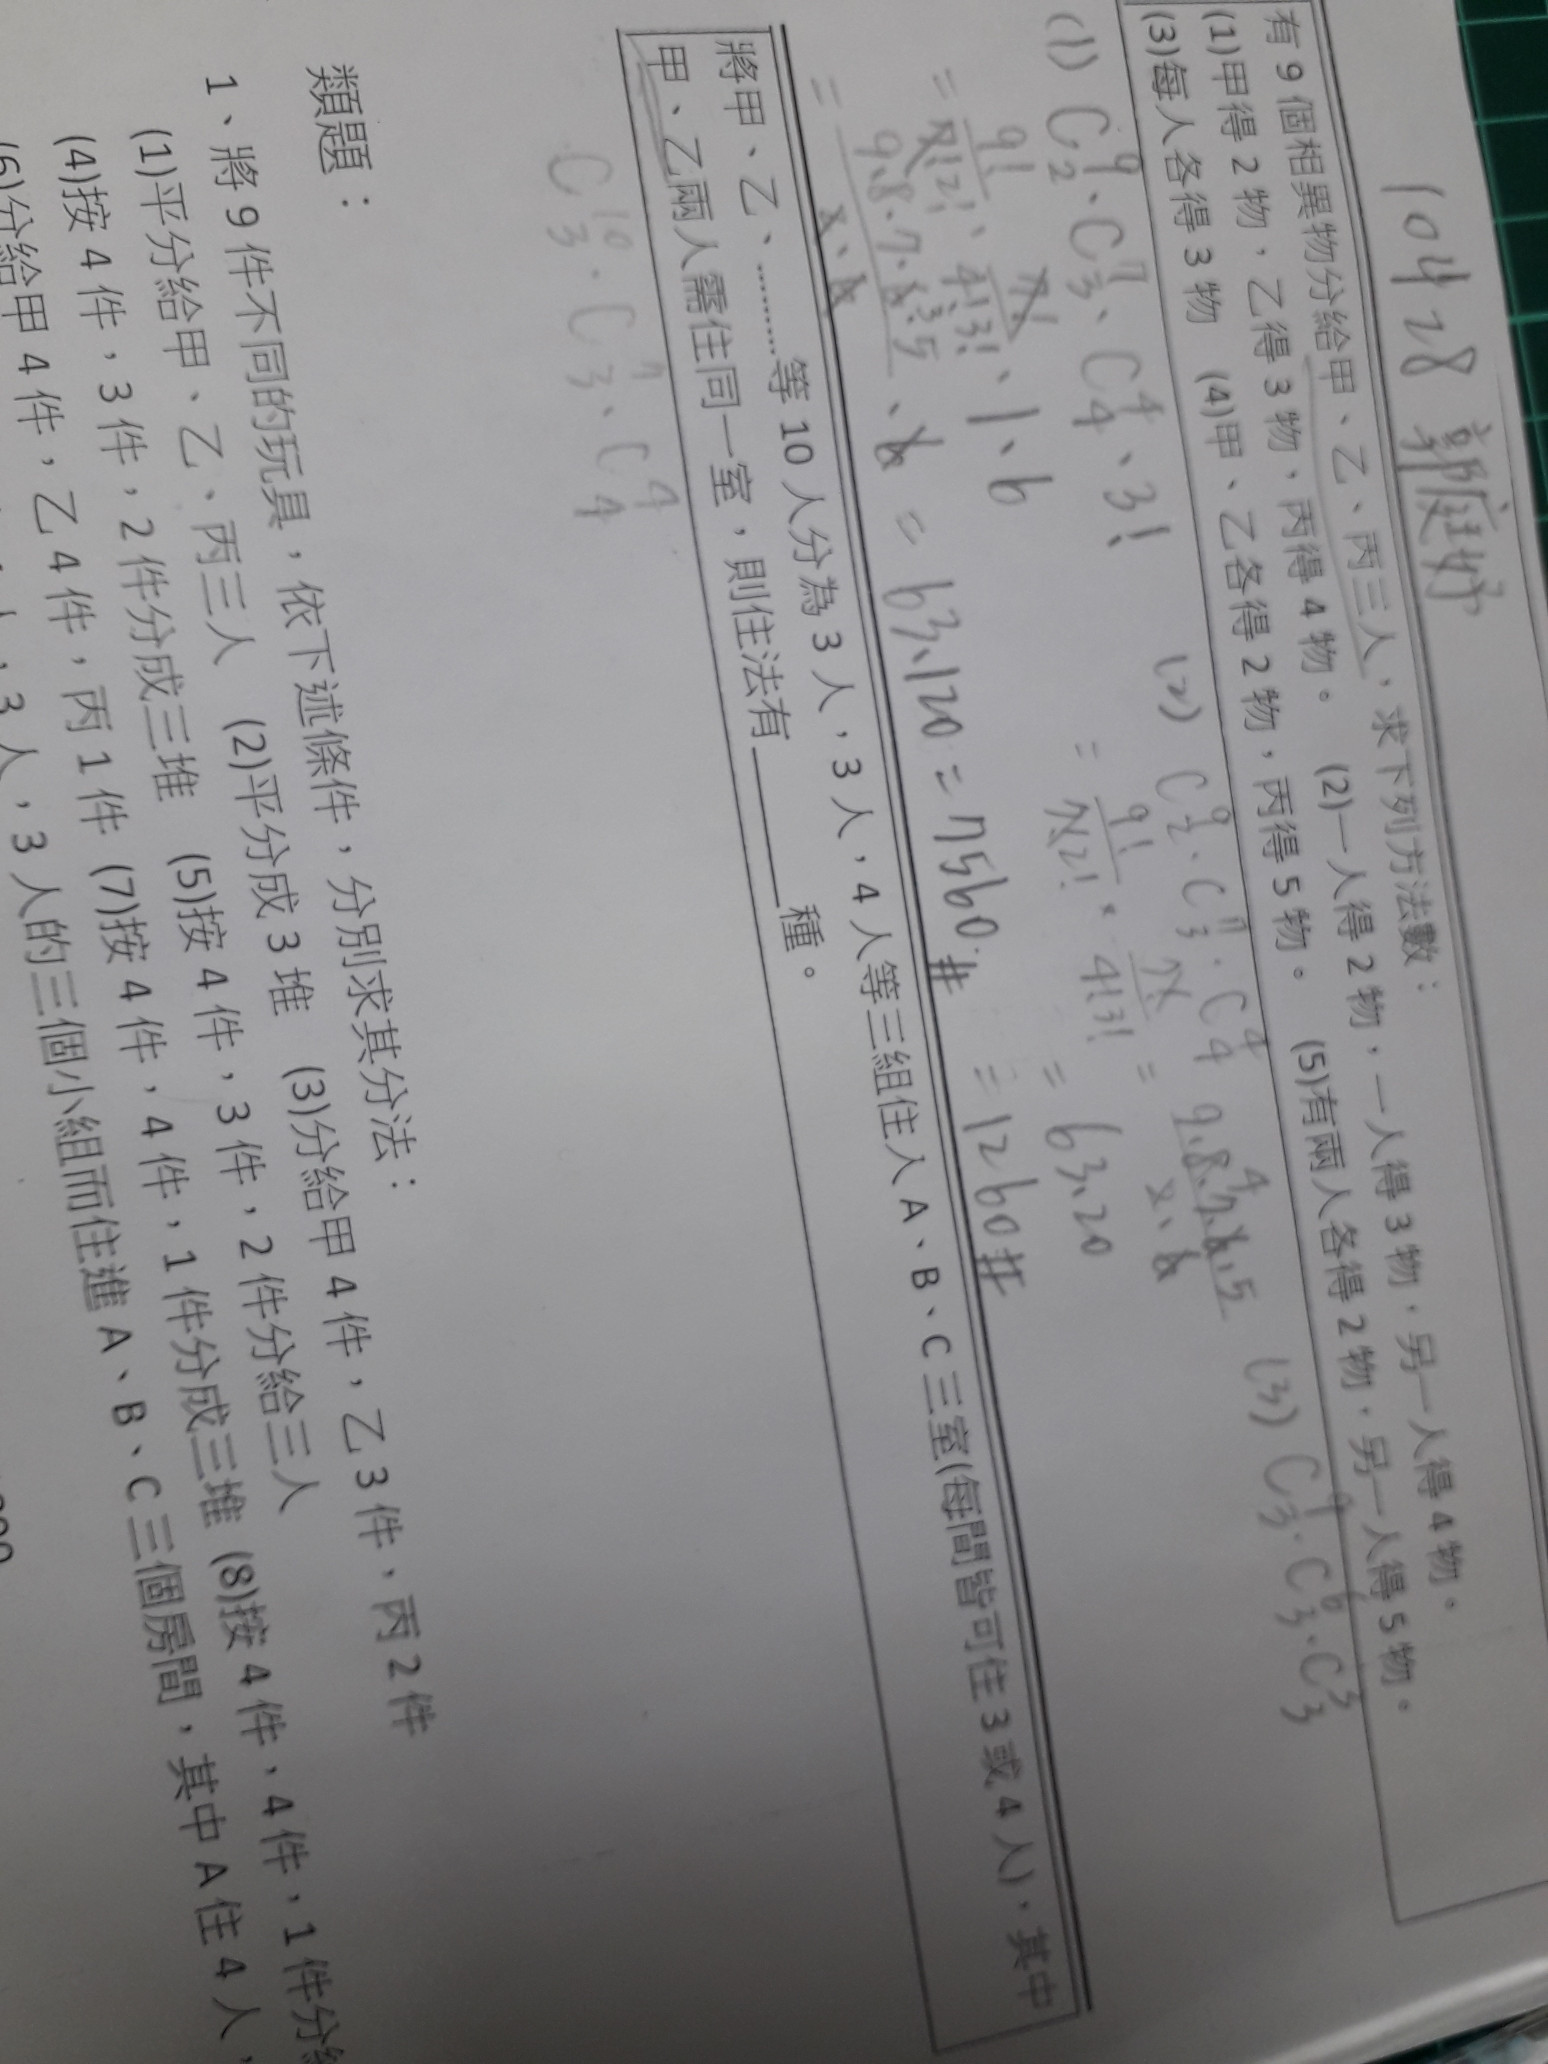 10428 郭庭妤
有 9 個相異物分給甲、乙、丙三人，求下列方法數：
(1)甲得 2 物，乙得 3 物，丙得 4 物。 (2)一人得 2 物，一人得 3 物，另一人得 4 物。
(3)每人各得 3 物 (4)甲、乙各得 2 物，丙得 5 物。 (5)有兩人各得 2 物，另一人得 5 物。
(1) C⁹₂、C⁷₃、C⁴₄、3!
= 9!/7!2!、7!/4!3!、1、6
= 9.8.7.6.5/2、6、6 = 63、120 = 7560 #
(2) C⁹₂·C⁷₃·C⁴₄
= 9!/7!2! × 7!/4!3! = 9.8.7.6.5/2、6
= 63、20
= 1260 #
(3) C⁹₃·C⁶₃·C³₃
將甲、乙、………等 10 人分為 3 人，3 人，4 人等三組住入 A、B、C 三室(每間皆可住 3 或 4 人)，其中
甲、乙兩人需住同一室，則住法有______種。
C¹⁰₃·C⁷₃、C⁴₄
類題：
1、將 9 件不同的玩具，依下述條件，分別求其分法：
(1)平分給甲、乙、丙三人 (2)平分成 3 堆 (3)分給甲 4 件，乙 3 件，丙 2 件
(4)按 4 件，3 件，2 件分成三堆 (5)按 4 件，3 件，2 件分給三人
(6)分給甲 4 件，乙 4 件，丙 1 件 (7)按 4 件，4 件，1 件分成三堆 (8)按 4 件，4 件，1 件分給
3 人，3 人的三個小組而住進 A、B、C 三個房間，其中 A 住 4 人，